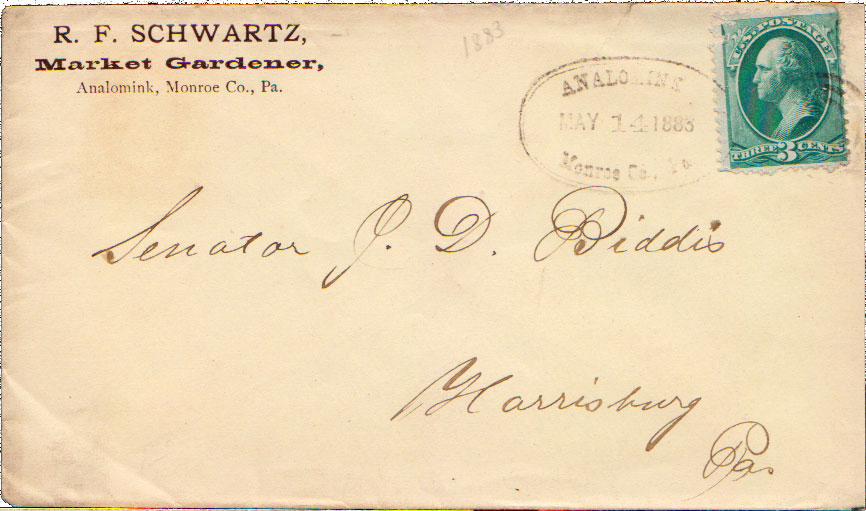 R. F. SCHWARTZ,
Market Gardener,
Analomink, Monroe Co., Pa.
1883
ANALOMINK
MAY 14 1883
Monroe Co., Pa
U.S. POSTAGE
THREE 3 CENTS
Senator J. D. Biddis
Harrisburg
Pa.